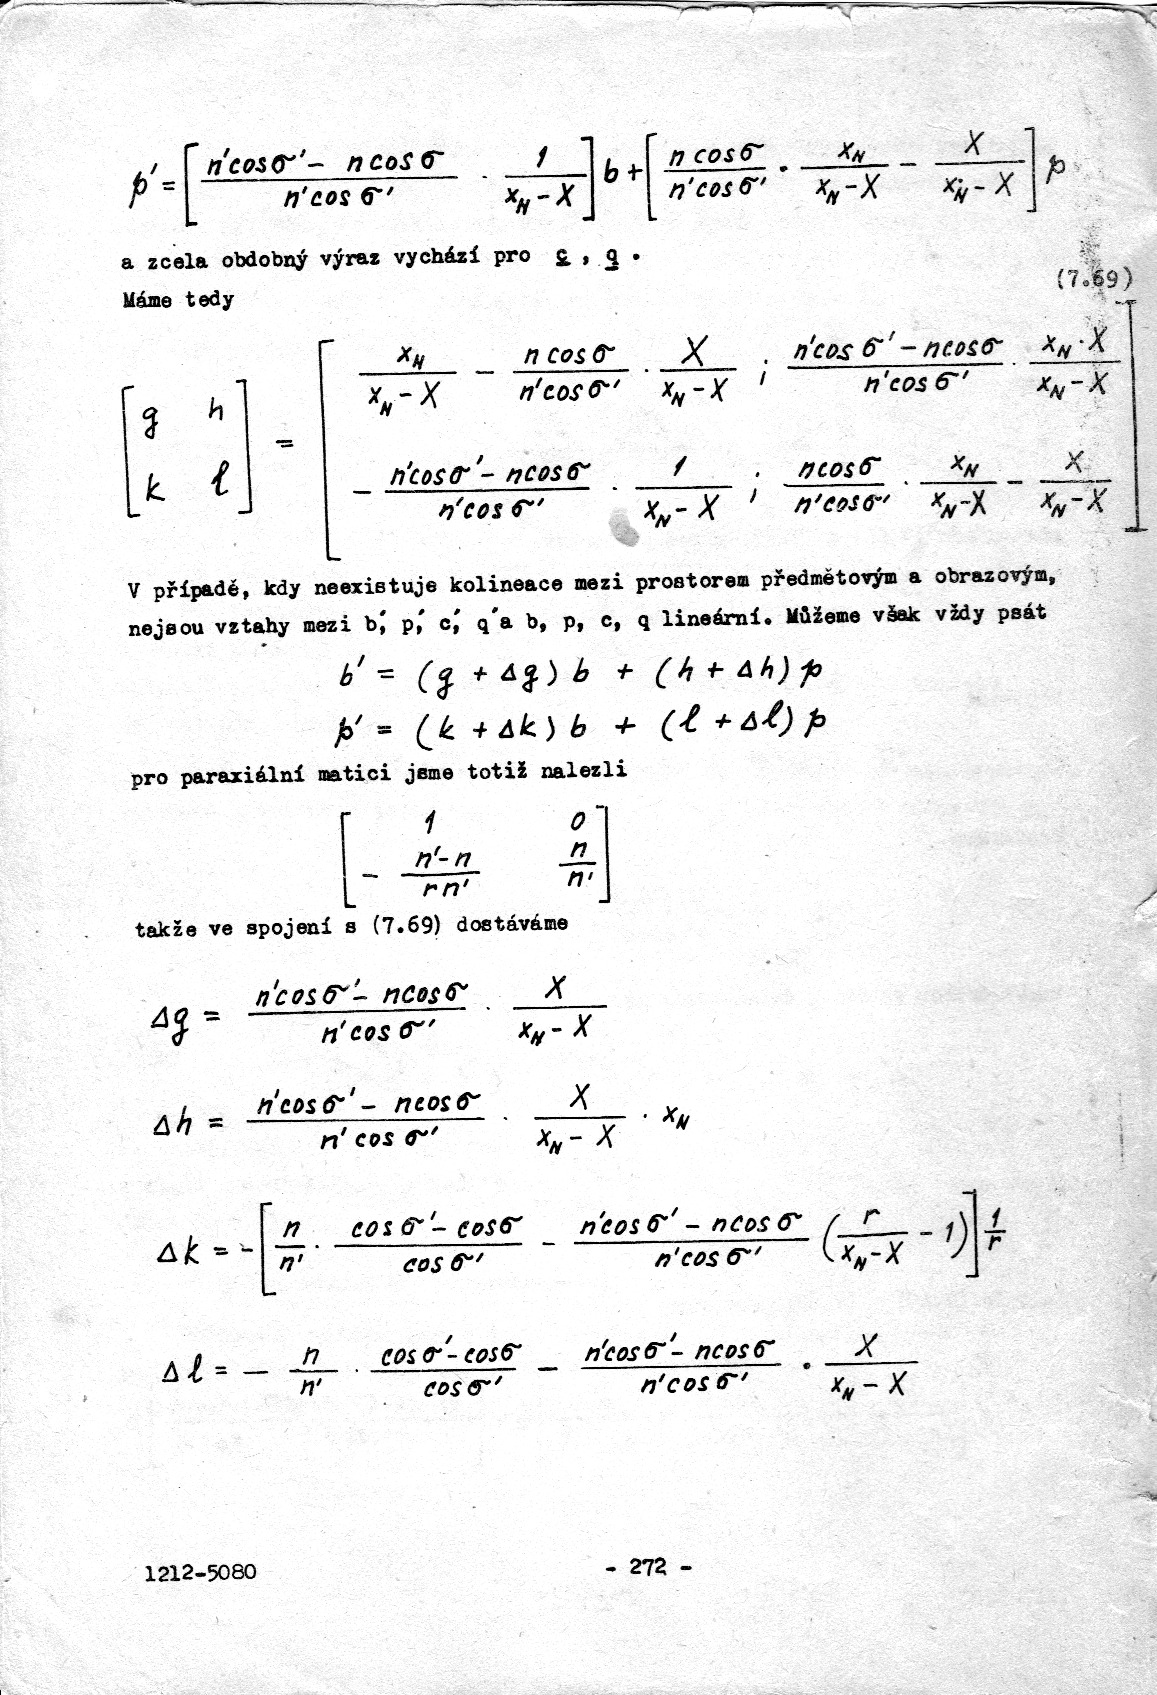 p' = [ (n'cosσ' - n cosσ)/(n'cosσ') · 1/(x_N - X) ] b + [ (n cosσ)/(n'cosσ') · x_N/(x_N - X) - X/(x_N - X) ] p
a zcela obdobný výraz vychází pro c , q .
(7.69)
Máme tedy
[ g h ; k ℓ ] = [ x_N/(x_N - X) - (n cosσ)/(n'cosσ') · X/(x_N - X) ; (n'cosσ' - n cosσ)/(n'cosσ') · (x_N · X)/(x_N - X)
- (n'cosσ' - n cosσ)/(n'cosσ') · 1/(x_N - X) ; (n cosσ)/(n'cosσ') · x_N/(x_N - X) - X/(x_N - X) ]
V případě, kdy neexistuje kolineace mezi prostorem předmětovým a obrazovým,
nejsou vztahy mezi b', p', c', q' a b, p, c, q lineární. Můžeme však vždy psát
b' = (g + Δg) b + (h + Δh) p
p' = (k + Δk) b + (ℓ + Δℓ) p
pro paraxiální matici jsme totiž nalezli
[ 1 0
- (n' - n)/(r n') n/n' ]
takže ve spojení s (7.69) dostáváme
Δg = (n'cosσ' - n cosσ)/(n'cosσ') · X/(x_N - X)
Δh = (n'cosσ' - n cosσ)/(n' cosσ') · X/(x_N - X) · x_N
Δk = - [ n/n' · (cosσ' - cosσ)/(cosσ') - (n'cosσ' - n cosσ)/(n'cosσ') ( r/(x_N - X) - 1 ) ] 1/r
Δℓ = - n/n' · (cosσ' - cosσ)/(cosσ') - (n'cosσ' - n cosσ)/(n'cosσ') · X/(x_N - X)
1212-5080
- 272 -